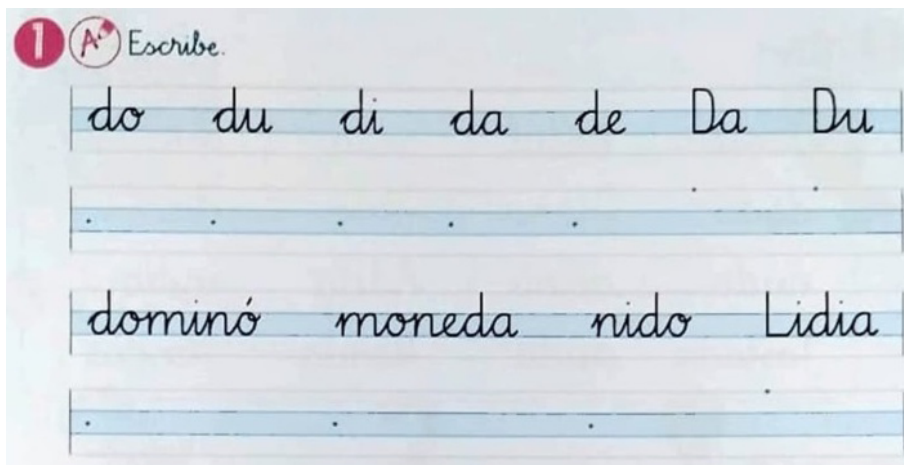 1 A Escribe.
do du di da de Da Du
dominó moneda nido Lidia